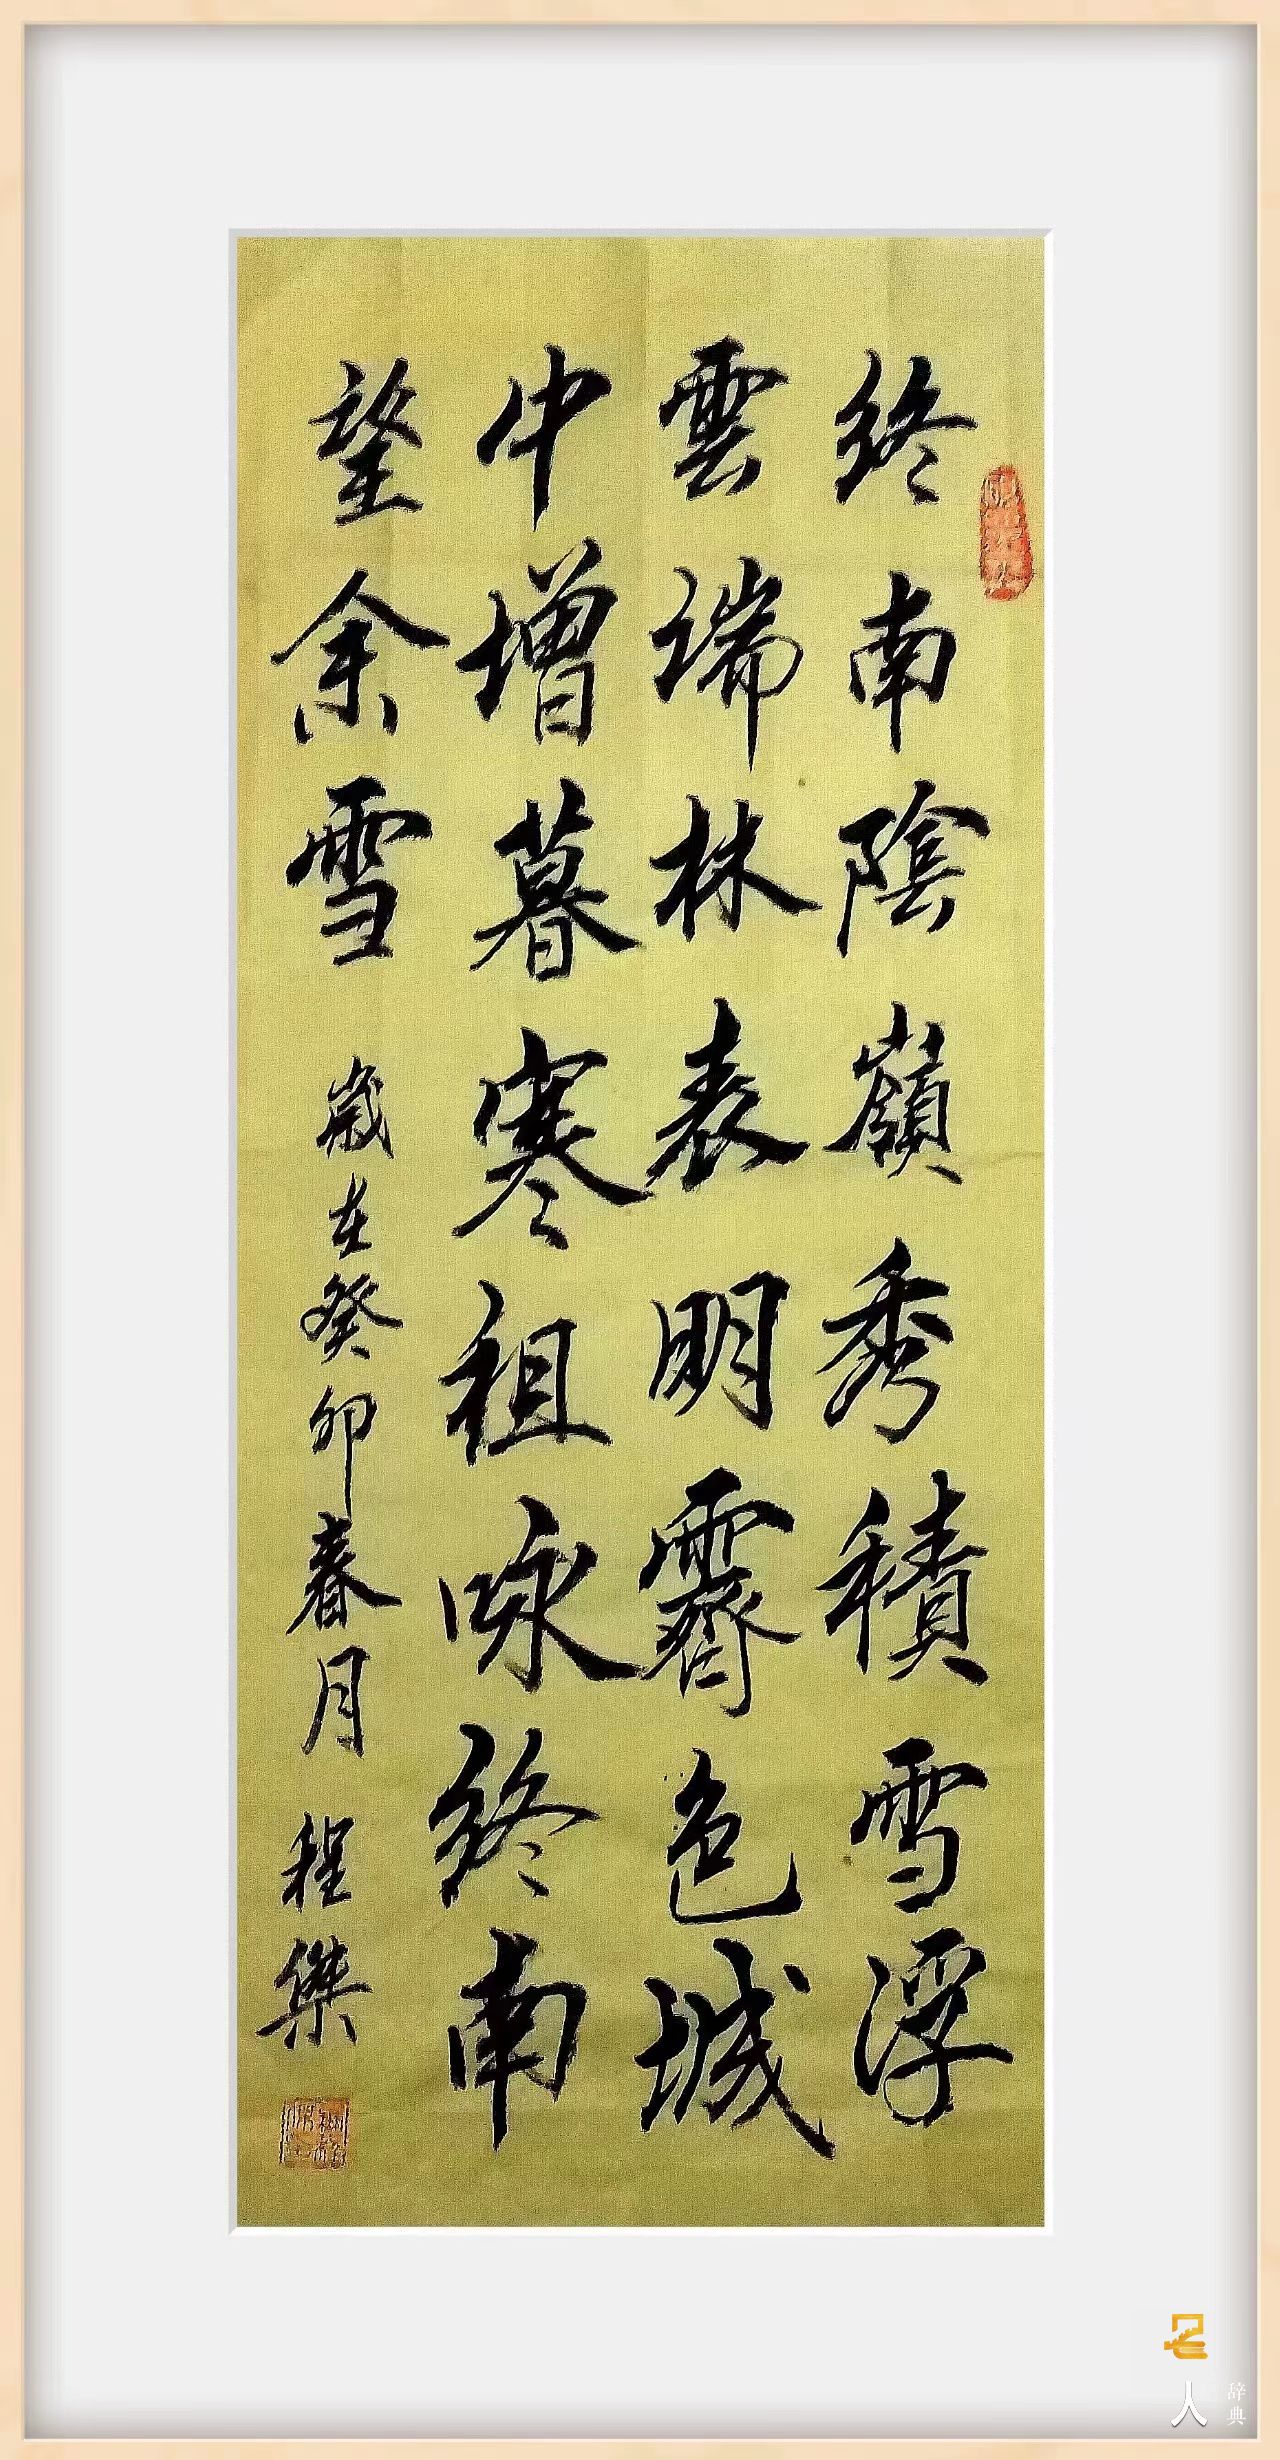 终南陰嶺秀積雪浮
雲端林表明霽色城
中增暮寒祖咏终南
望余雪 歲在癸卯春月 程傑
名人
辞典